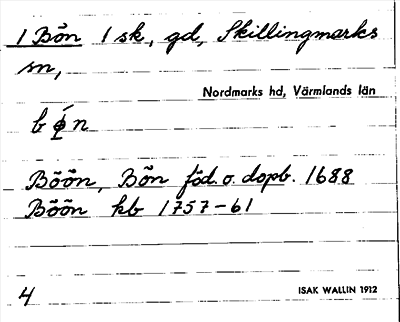 1 Bön 1 sk, gd, Skillingmarks
sn,
Nordmarks hd, Värmlands län
b ǿ n
Böön, Bön föd. o. dopb. 1688
Böön kb 1757-61
4
ISAK WALLIN 1912